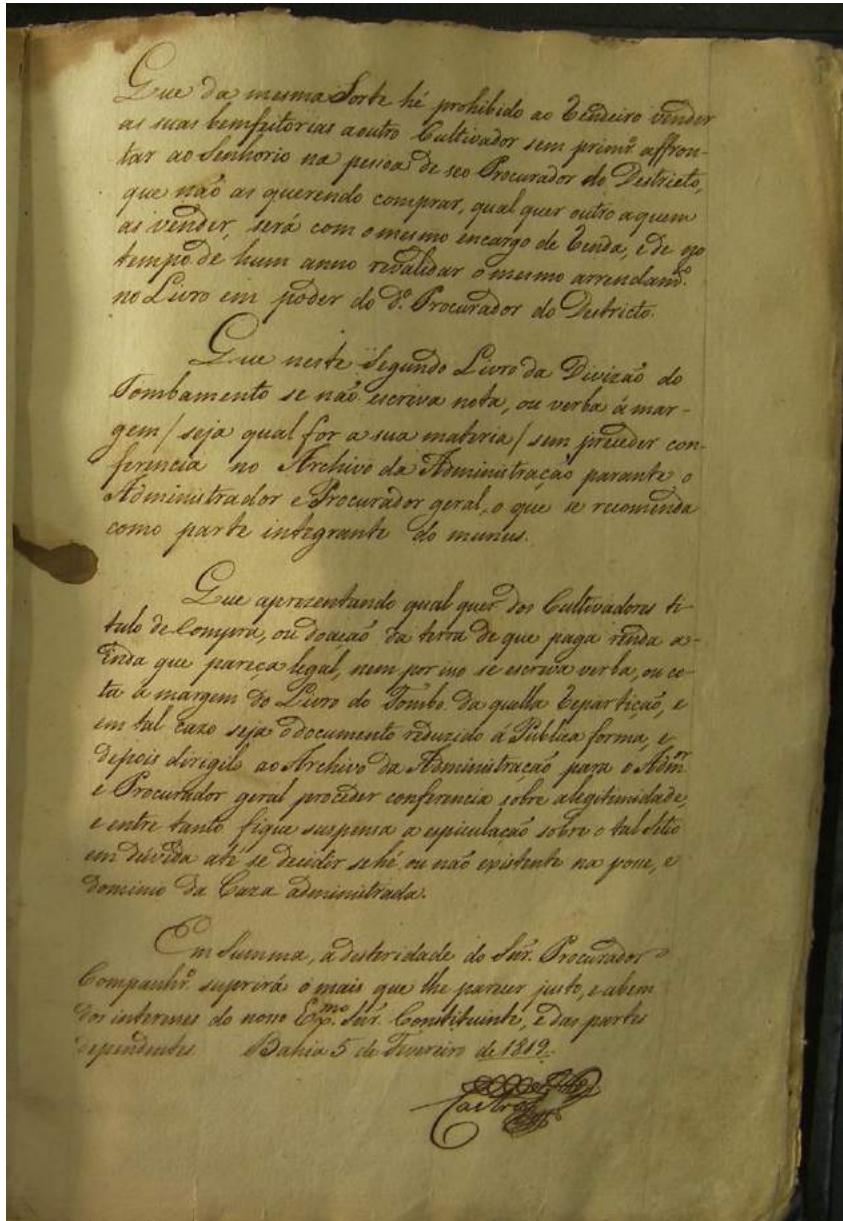 Que da mesma Sorte hé prohibido ao Rendeiro vender
as suas bemfeitorias aoutro Cultivador sem primr.º affron-
tar ao Senhorio na pessoa de seo Procurador do Destricto,
que não as querendo comprar, qual quer outro aquem
as vender, será com o mesmo encargo de Renda, e de no
tempo de hum anno revalidar o mesmo arrendamt.º
no Livro em poder do d.º Procurador do Destricto.
Que neste Segundo Livro da Divizaõ do
Tombamento se naõ escriva nota, ou verba á mar-
gem / seja qual for a sua materia / sem preceder con-
ferencia no Archivo da Administraçaõ parante o
Administrador e Procurador geral, o que se recomenda
como parte integrante do munus.
Que aprezentando qual quer dos Cultivadores ti-
tulo de Compra, ou doaçaõ da terra de que paga renda a-
inda que pareça legal, nem por isso se escriva verba, ou co-
ta á margem do Livro do Tombo da quella Repartiçaõ, e
em tal cazo seja o documento reduzido á Publica forma, e
depois dirigilo ao Archivo da Administraçaõ para o Admor
e Procurador geral proceder conferencia sobre a legitimidade,
e entre tanto fique suspensa a espiculaçaõ sobre o tal Sitio
em duvida até se decidir se hé ou naõ existente na posse, e
dominio da Caza administrada.
Em Summa, a desteridade do Snr. Procurador
Companhr.º suprirá o mais que lhe parecer justo, e abem
dos interesses do nosso Exmo. Snr. Constituinte, e das partes
dependentes Bahia 5 de Fevereiro de 1819.
Castro